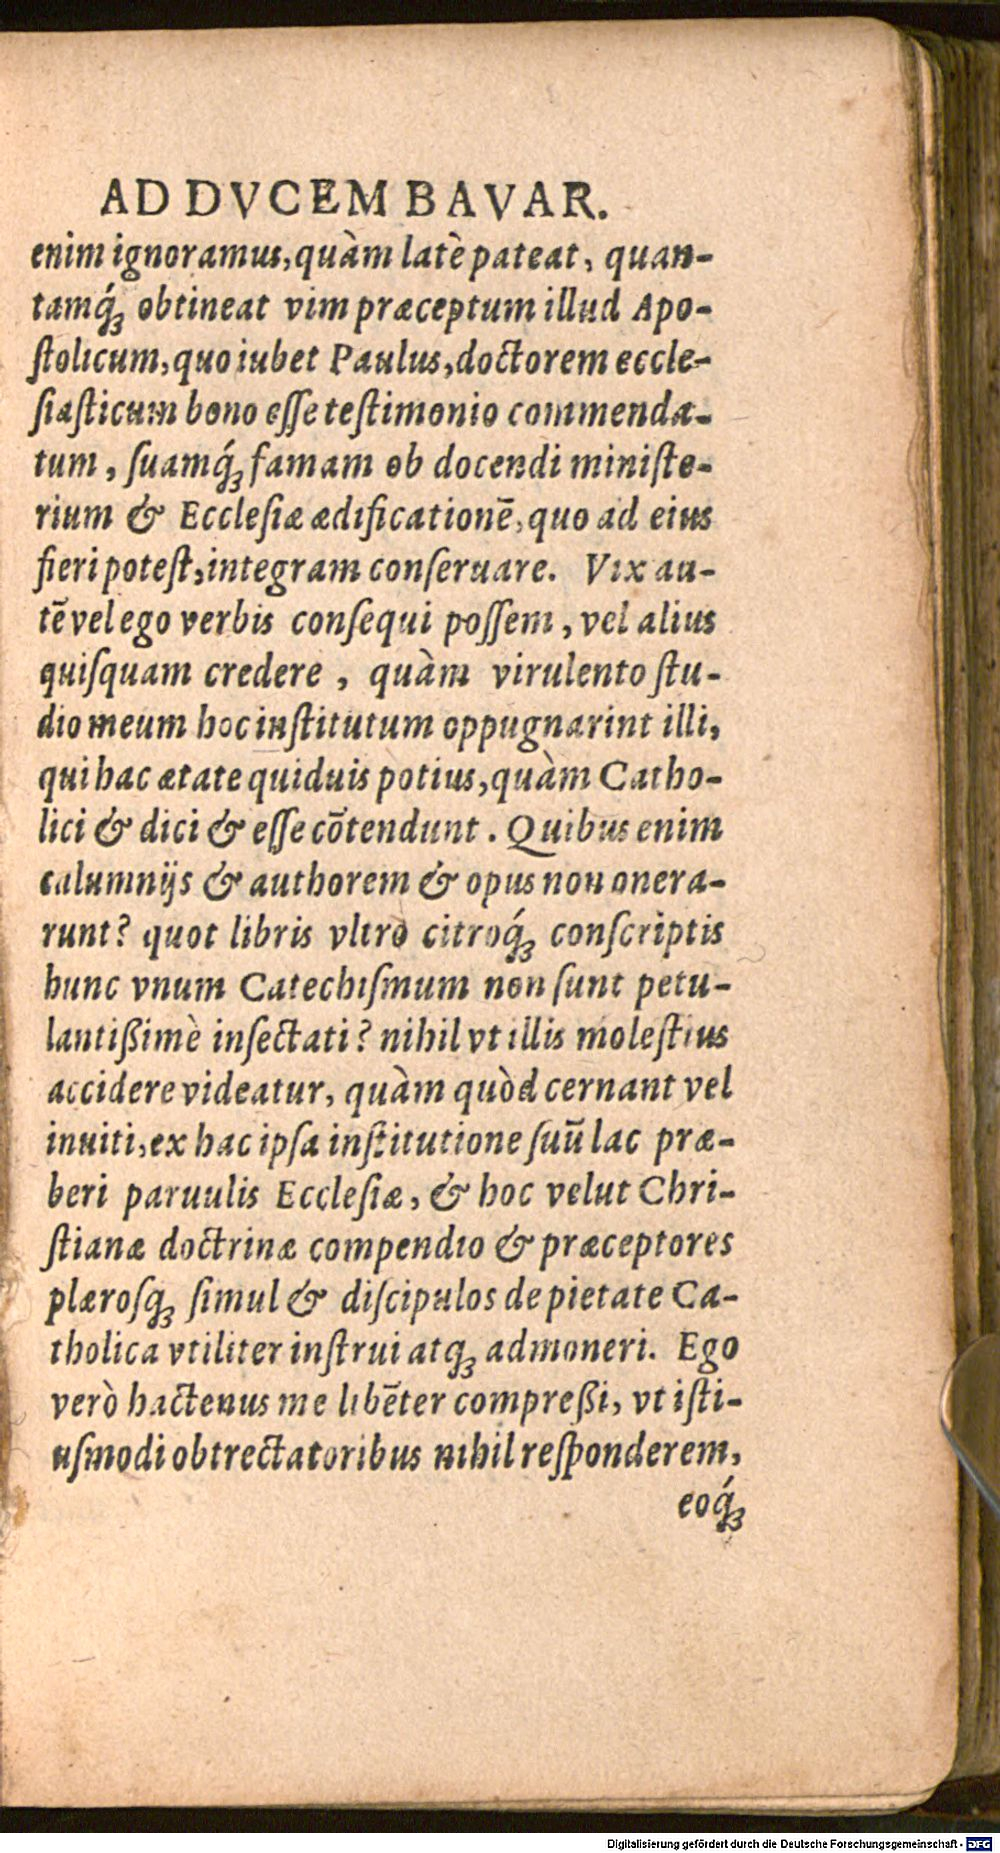 AD DVCEM BAVAR.
enim ignoramus, quàm latè pateat, quan-
tamq́ꝫ obtineat vim præceptum illud Apo-
ſtolicum, quo iubet Paulus, doctorem eccle-
ſiaſticum bono eſſe teſtimonio commenda-
tum, ſuamq́ꝫ famam ob docendi miniſte-
rium & Eccleſiæ ædificationē, quo ad eius
fieri poteſt, integram conſeruare. Vix au-
tē vel ego verbis conſequi poſſem, vel alius
quiſquam credere, quàm virulento ſtu-
dio meum hoc inſtitutum oppugnarint illi,
qui hac ætate quiduis potius, quàm Catho-
lici & dici & eſſe cōtendunt. Quibus enim
calumnijs & authorem & opus non onera-
runt? quot libris vltrò citroq́ꝫ conſcriptis
hunc vnum Catechiſmum non ſunt petu-
lantißimè inſectati? nihil vt illis moleſtius
accidere videatur, quàm quòd cernant vel
inuiti, ex hac ipſa inſtitutione ſuū lac præ-
beri paruulis Eccleſiæ, & hoc velut Chri-
ſtianæ doctrinæ compendio & præceptores
plæroſqꝫ ſimul & diſcipulos de pietate Ca-
tholica vtiliter inſtrui atqꝫ admoneri. Ego
verò hactenus me libēter compreßi, vt iſti-
uſmodi obtrectatoribus nihil reſponderem,
eoq́ꝫ
Digitalisierung gefördert durch die Deutsche Forschungsgemeinschaft - DFG